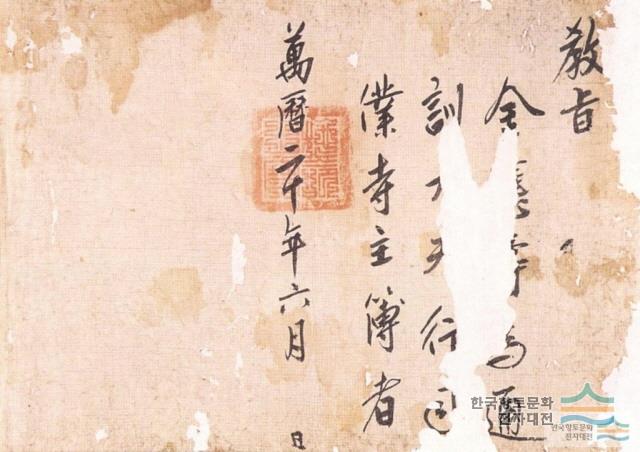 教旨
金 為通
訓大夫行司
僕寺主簿者
萬曆二十年六月 日
한국향토문화
전자대전
한국향토문화
전자대전